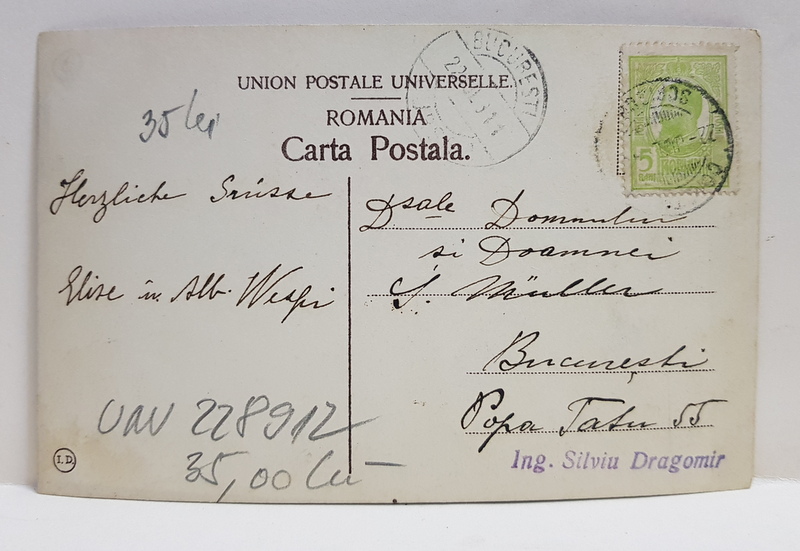 UNION POSTALE UNIVERSELLE.
ROMANIA
Carta Postala.
BUCURESTI
5
35 lei
Herzliche Grüsse
Elise u. Alb. Wespi
Dsale Domnului
si Doamnei
S. Müller
Bucureşti
Popa Tatu 55
Ing. Silviu Dragomir
UAV 228912
35,00 lei
I.D.